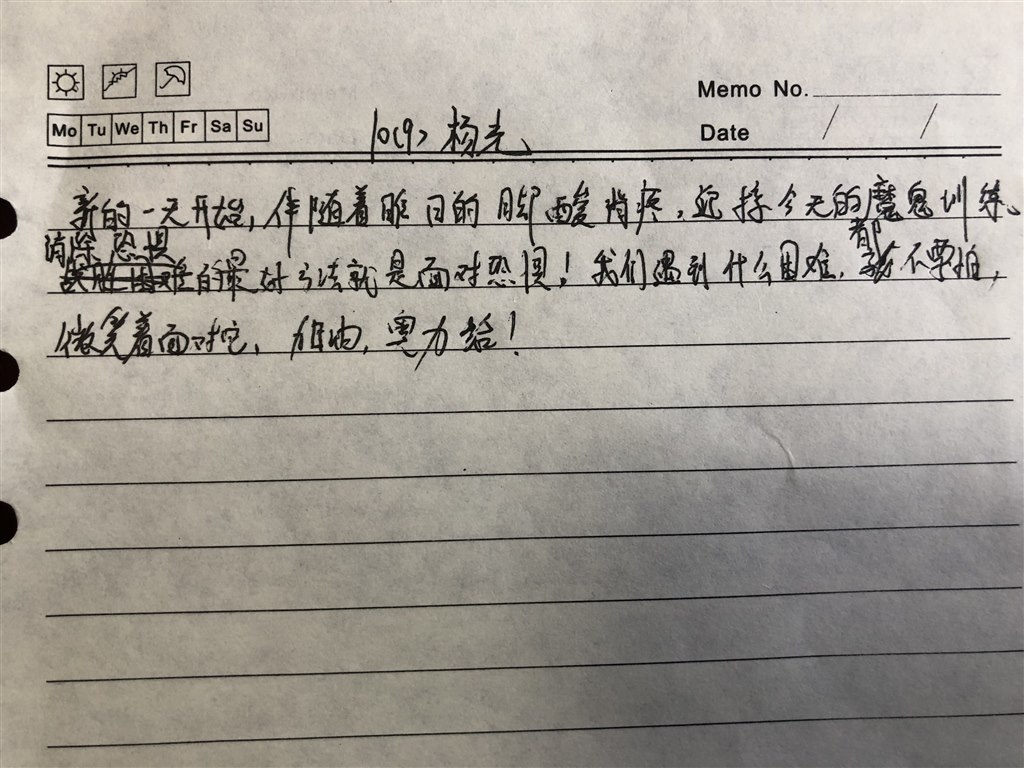 Memo No.
Mo Tu We Th Fr Sa Su
Date / /
10(9) 杨光
新的一天开始,伴随着昨日的脚酸背疼,迎接今天的魔鬼训练。
消除恐惧的最好方法就是面对恐惧!我们遇到什么困难,都不要怕,
微笑着面对它,加油,奥力给!